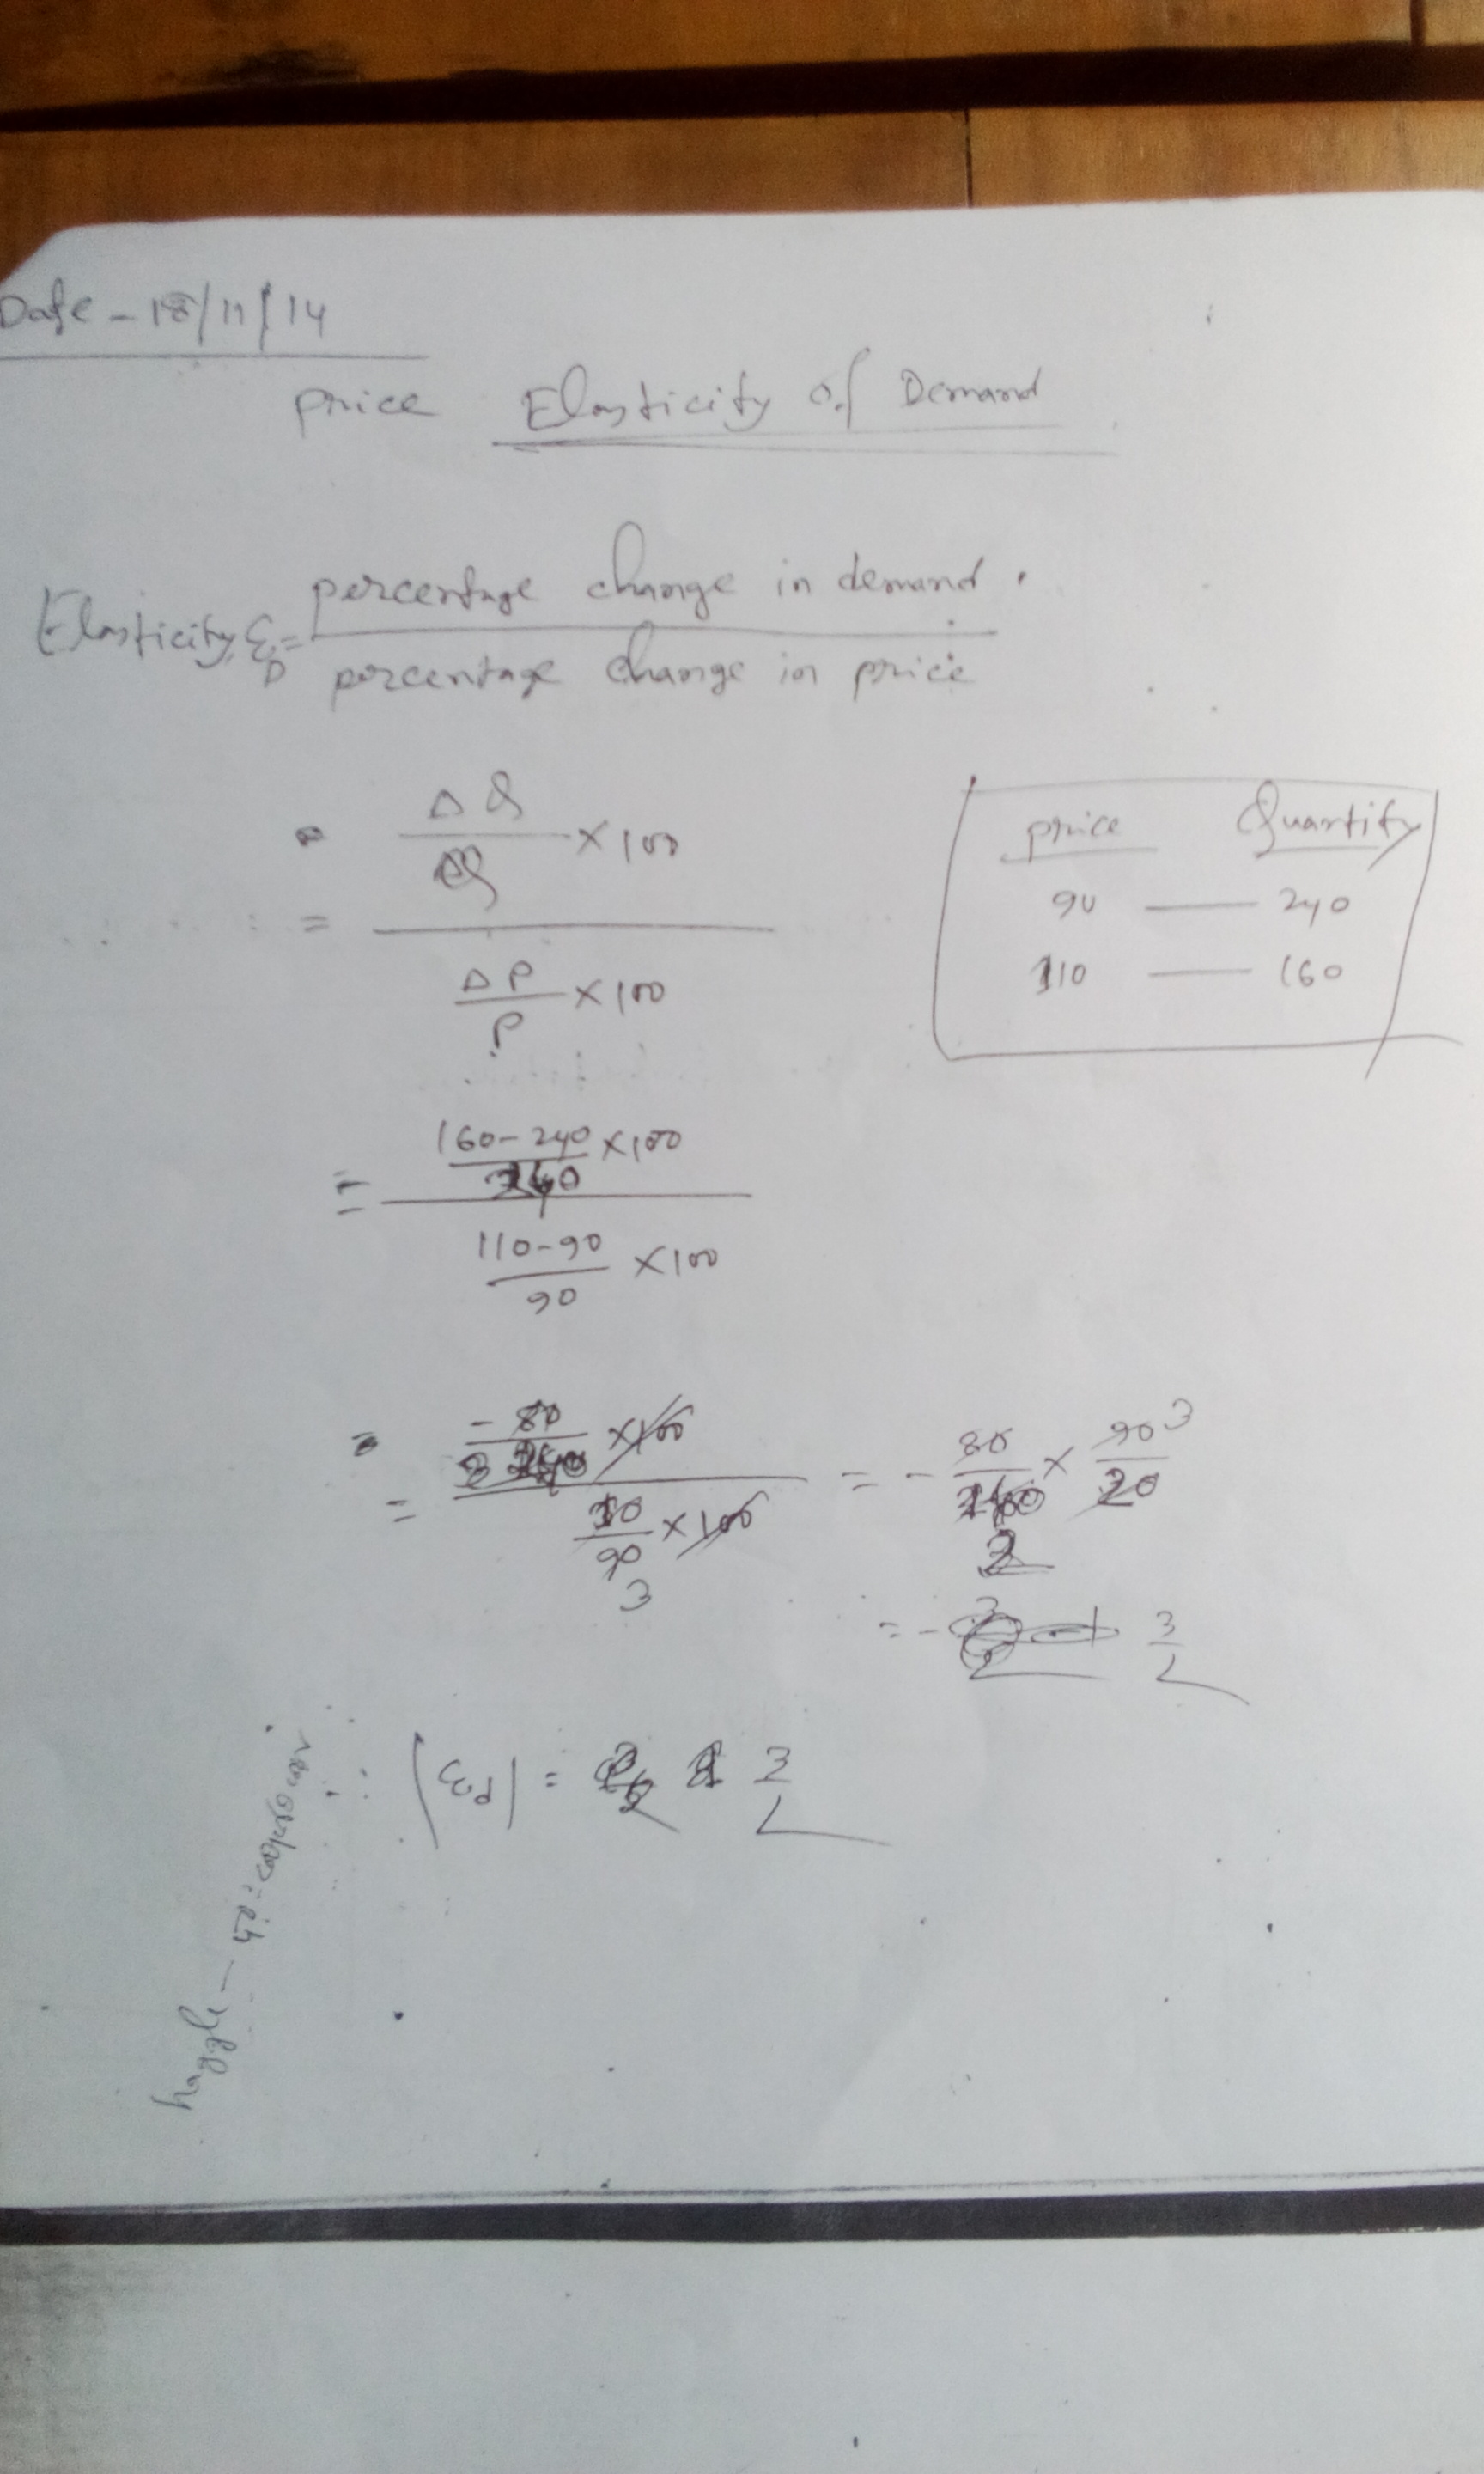 Date - 18/11/14
price Elasticity of Demand
Elasticity, ξD = percentage change in demand
percentage change in price
= ΔQ/Q × 100
ΔP/P × 100
price Quantity
90 — 240
110 — 160
= 160-240/240 × 100
110-90/90 × 100
= -80/240 × 100
20/90 × 100
3
= - 80/240 × 90/20
3
2
= - 3/2
∴ |ξd| = 3/2
haggle —